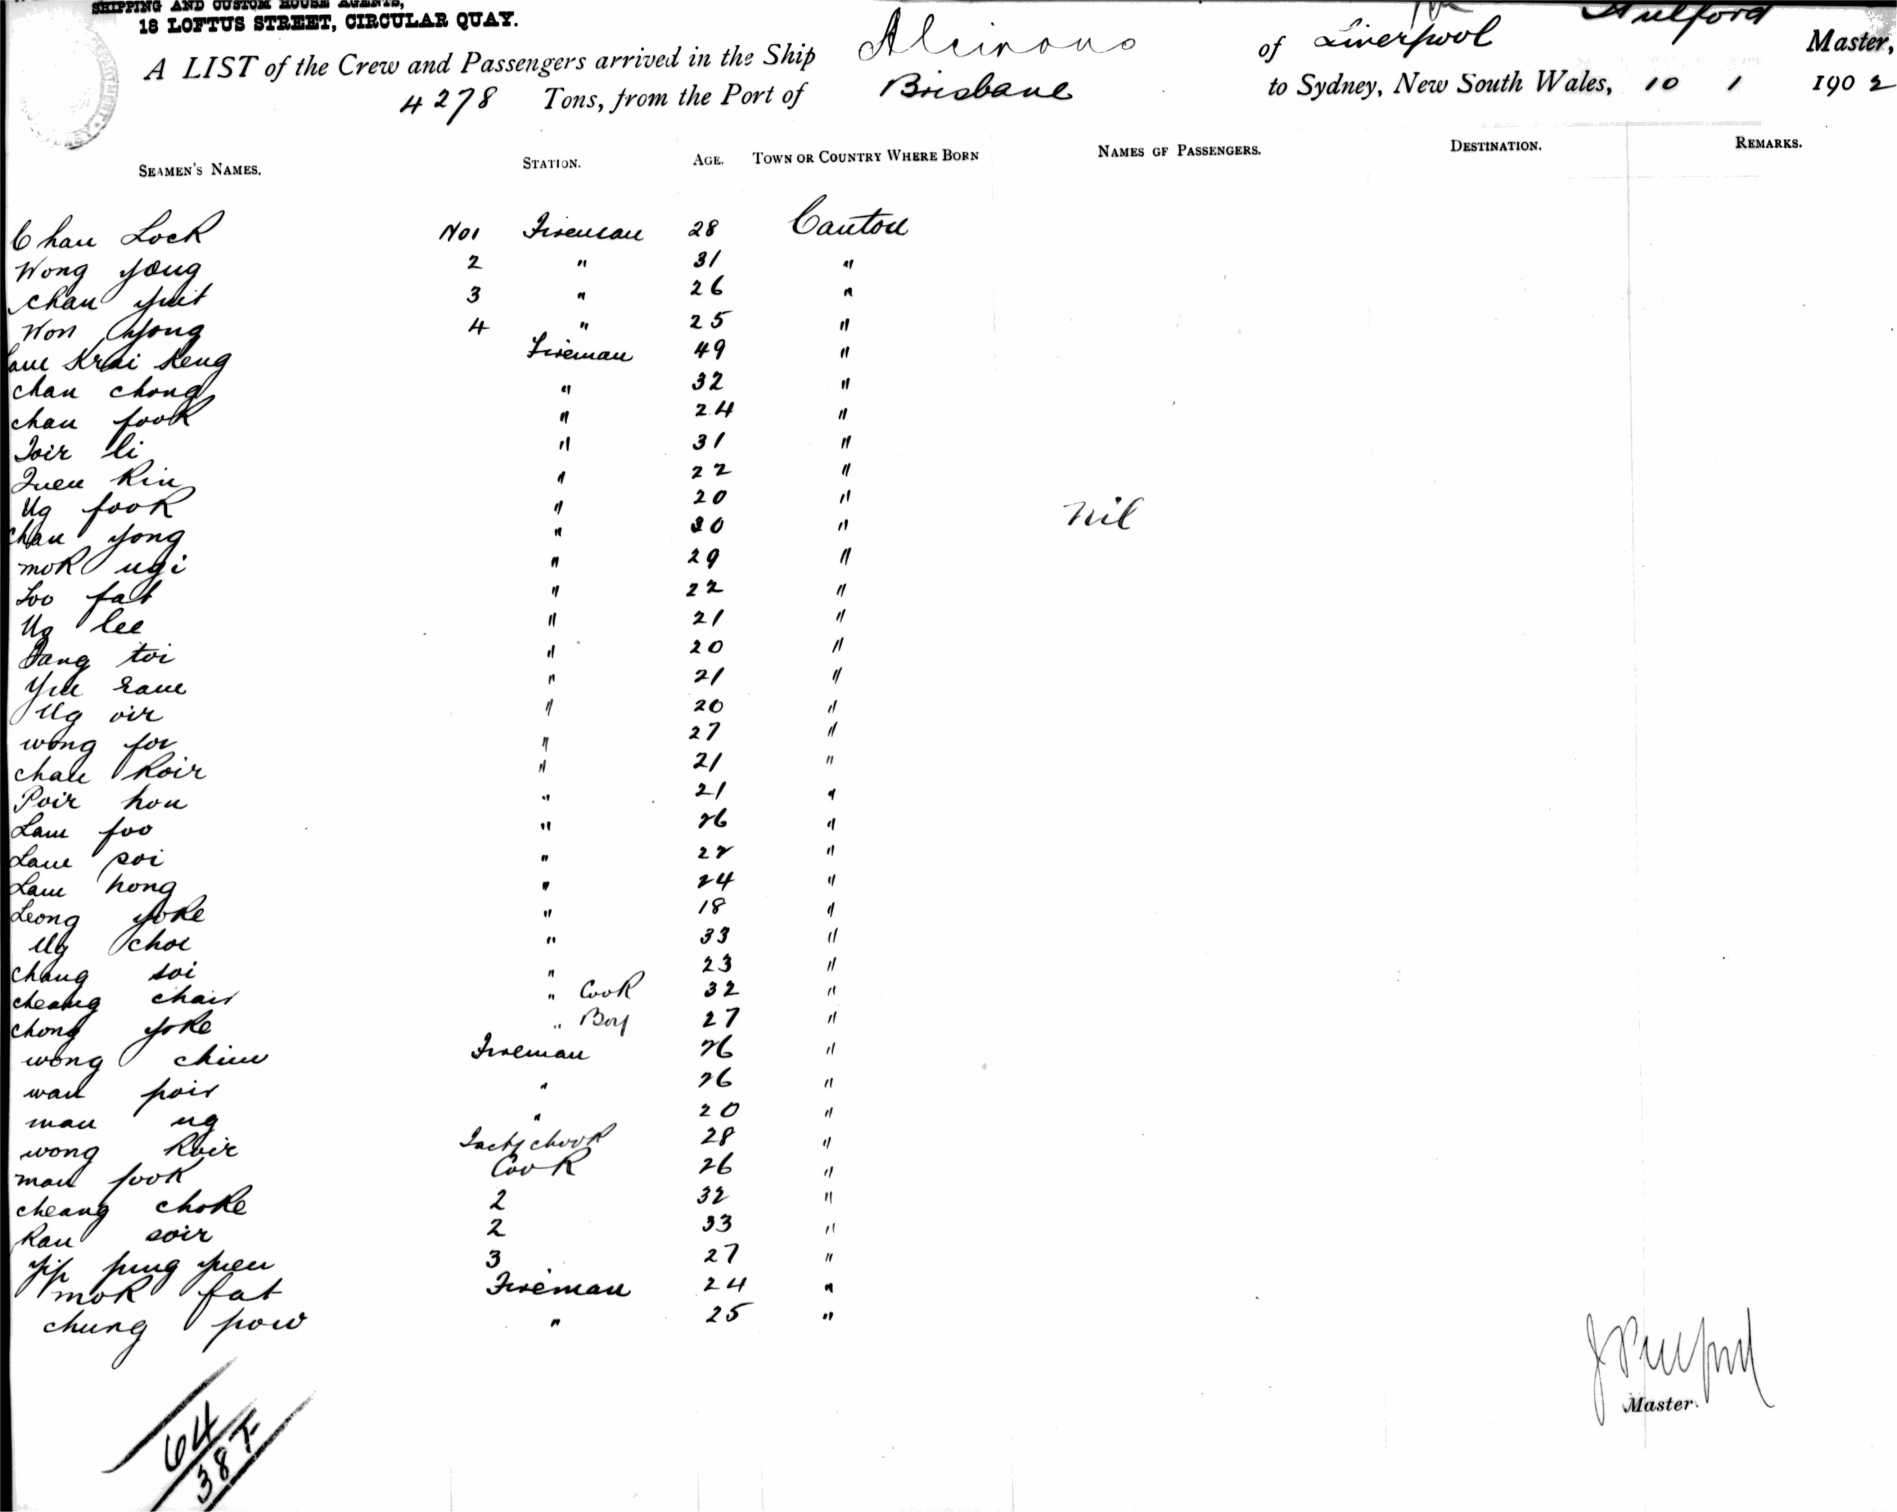 SHIPPING AND CUSTOM HOUSE AGENTS,
18 LOFTUS STREET, CIRCULAR QUAY.
A LIST of the Crew and Passengers arrived in the Ship Alcinous of Liverpool Pulford Master,
4278 Tons, from the Port of Brisbane to Sydney, New South Wales, 10 1 1902
SEAMEN'S NAMES. STATION. AGE. TOWN OR COUNTRY WHERE BORN NAMES OF PASSENGERS. DESTINATION. REMARKS.
Chan Lock No1 Fireman 28 Canton
Wong yong 2 " 31 "
Chan yuit 3 " 26 "
Won yong 4 " 25 "
Lam Krai Keng Fireman 49 "
chan chong " 32 "
chan fook " 24 "
li " 31 "
Kin " 22 "
Ng fook " 20 "
Nil
chan yong " 20 "
mok ngi " 29 "
Loo fat " 22 "
Ng lee " 21 "
toi " 20 "
" 21 "
Ng oir " 20 "
wong foi " 27 "
chan Koir " 21 "
Poir hon " 21 "
Lam foo " 26 "
Lam soi " 22 "
Lam hong " 24 "
Leong yoke " 18 "
Ng choi " 33 "
chang soi " 23 "
cheang chair " Cook 32 "
chong yoke " Boy 27 "
wong chim Fireman 26 "
wan poir " 26 "
man ng " 20 "
wong Koir 28 "
man fook Cook 26 "
cheang choke 2 32 "
Kan soir 2 33 "
yip pung yuen 3 27 "
mok fat Fireman 24 "
chung pow " 25 "
J Pulford
Master.
64
38 F